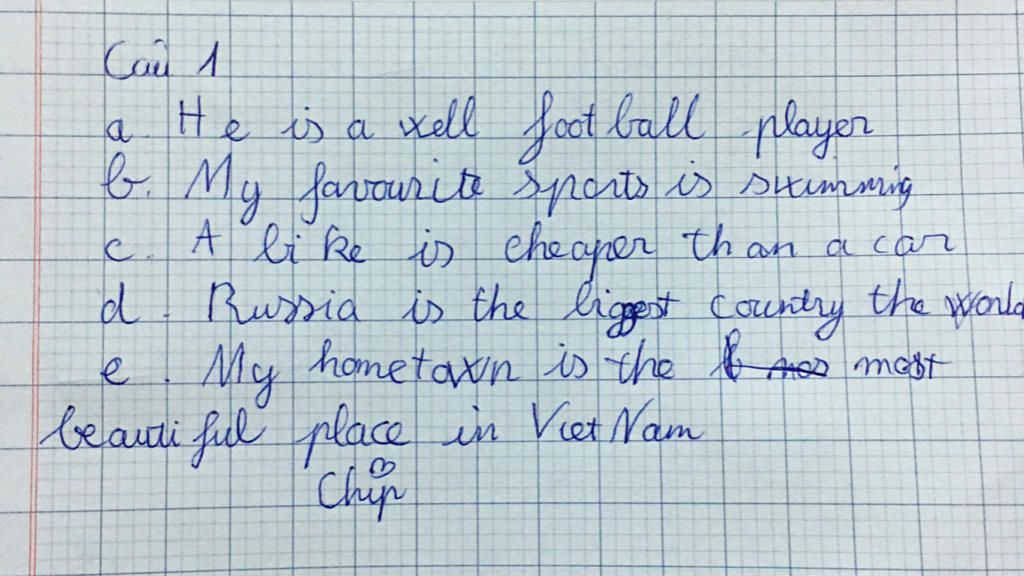 Câu 1
a. He is a well football player
b. My favourite sports is swimming
c. A bike is cheaper than a car
d. Russia is the biggest country the world
e. My hometown is the most
beautiful place in Viet Nam
Chip